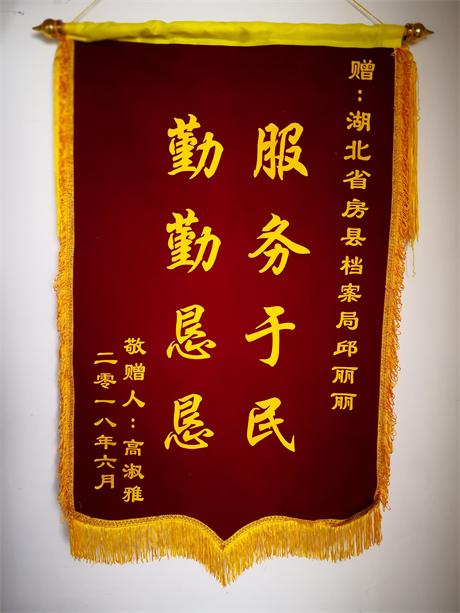 赠：湖北省房县档案局邱丽丽
服务于民
勤勤恳恳
敬赠人：高淑雅
二零一八年六月